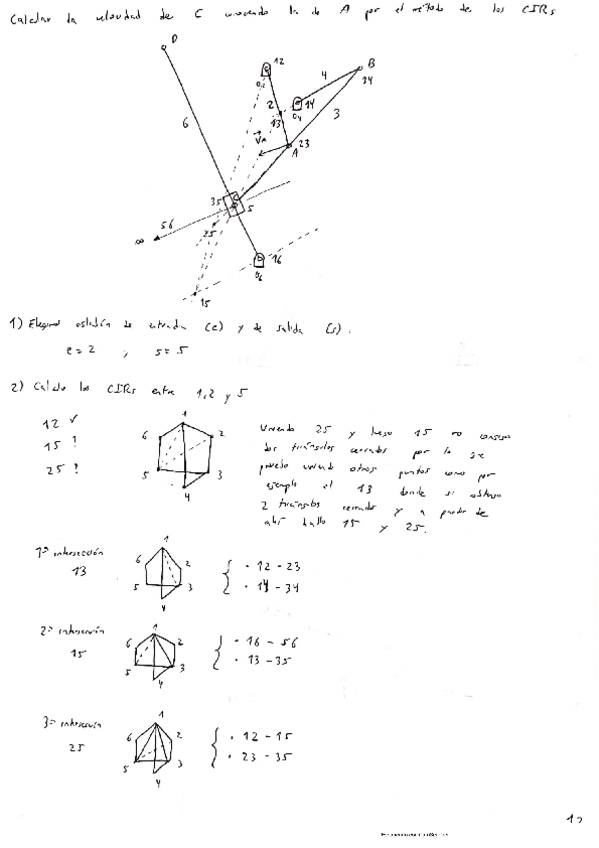 Calcular la velocidad de C conociendo la de A por el método de los CIRs
D
12
O2
B
34
4
2
14
O4
13
3
6
VA
23
A
35
5
56
25
∞
16
O6
15
1) Elegimos eslabón de entrada (e) y de salida (s).
e = 2 , s = 5
2) Calculo los CIRs entre 1, 2 y 5
12 ✓
15 ?
25 ?
1
6 2
5 3
4
Uniendo 25 y luego 15 no consigo
dos triángulos cerrados por lo que
pruebo uniendo otros puntos como por
ejemplo el 13 donde si obtengo
2 triángulos cerrados y a partir de
ahí hallo 15 y 25.
1ª intersección
13
1
6 2
5 3
4
· 12 - 23
· 14 - 34
2ª intersección
15
1
6 2
5 3
4
· 16 - 56
· 13 - 35
3ª intersección
25
1
6 2
5 3
4
· 12 - 15
· 23 - 35